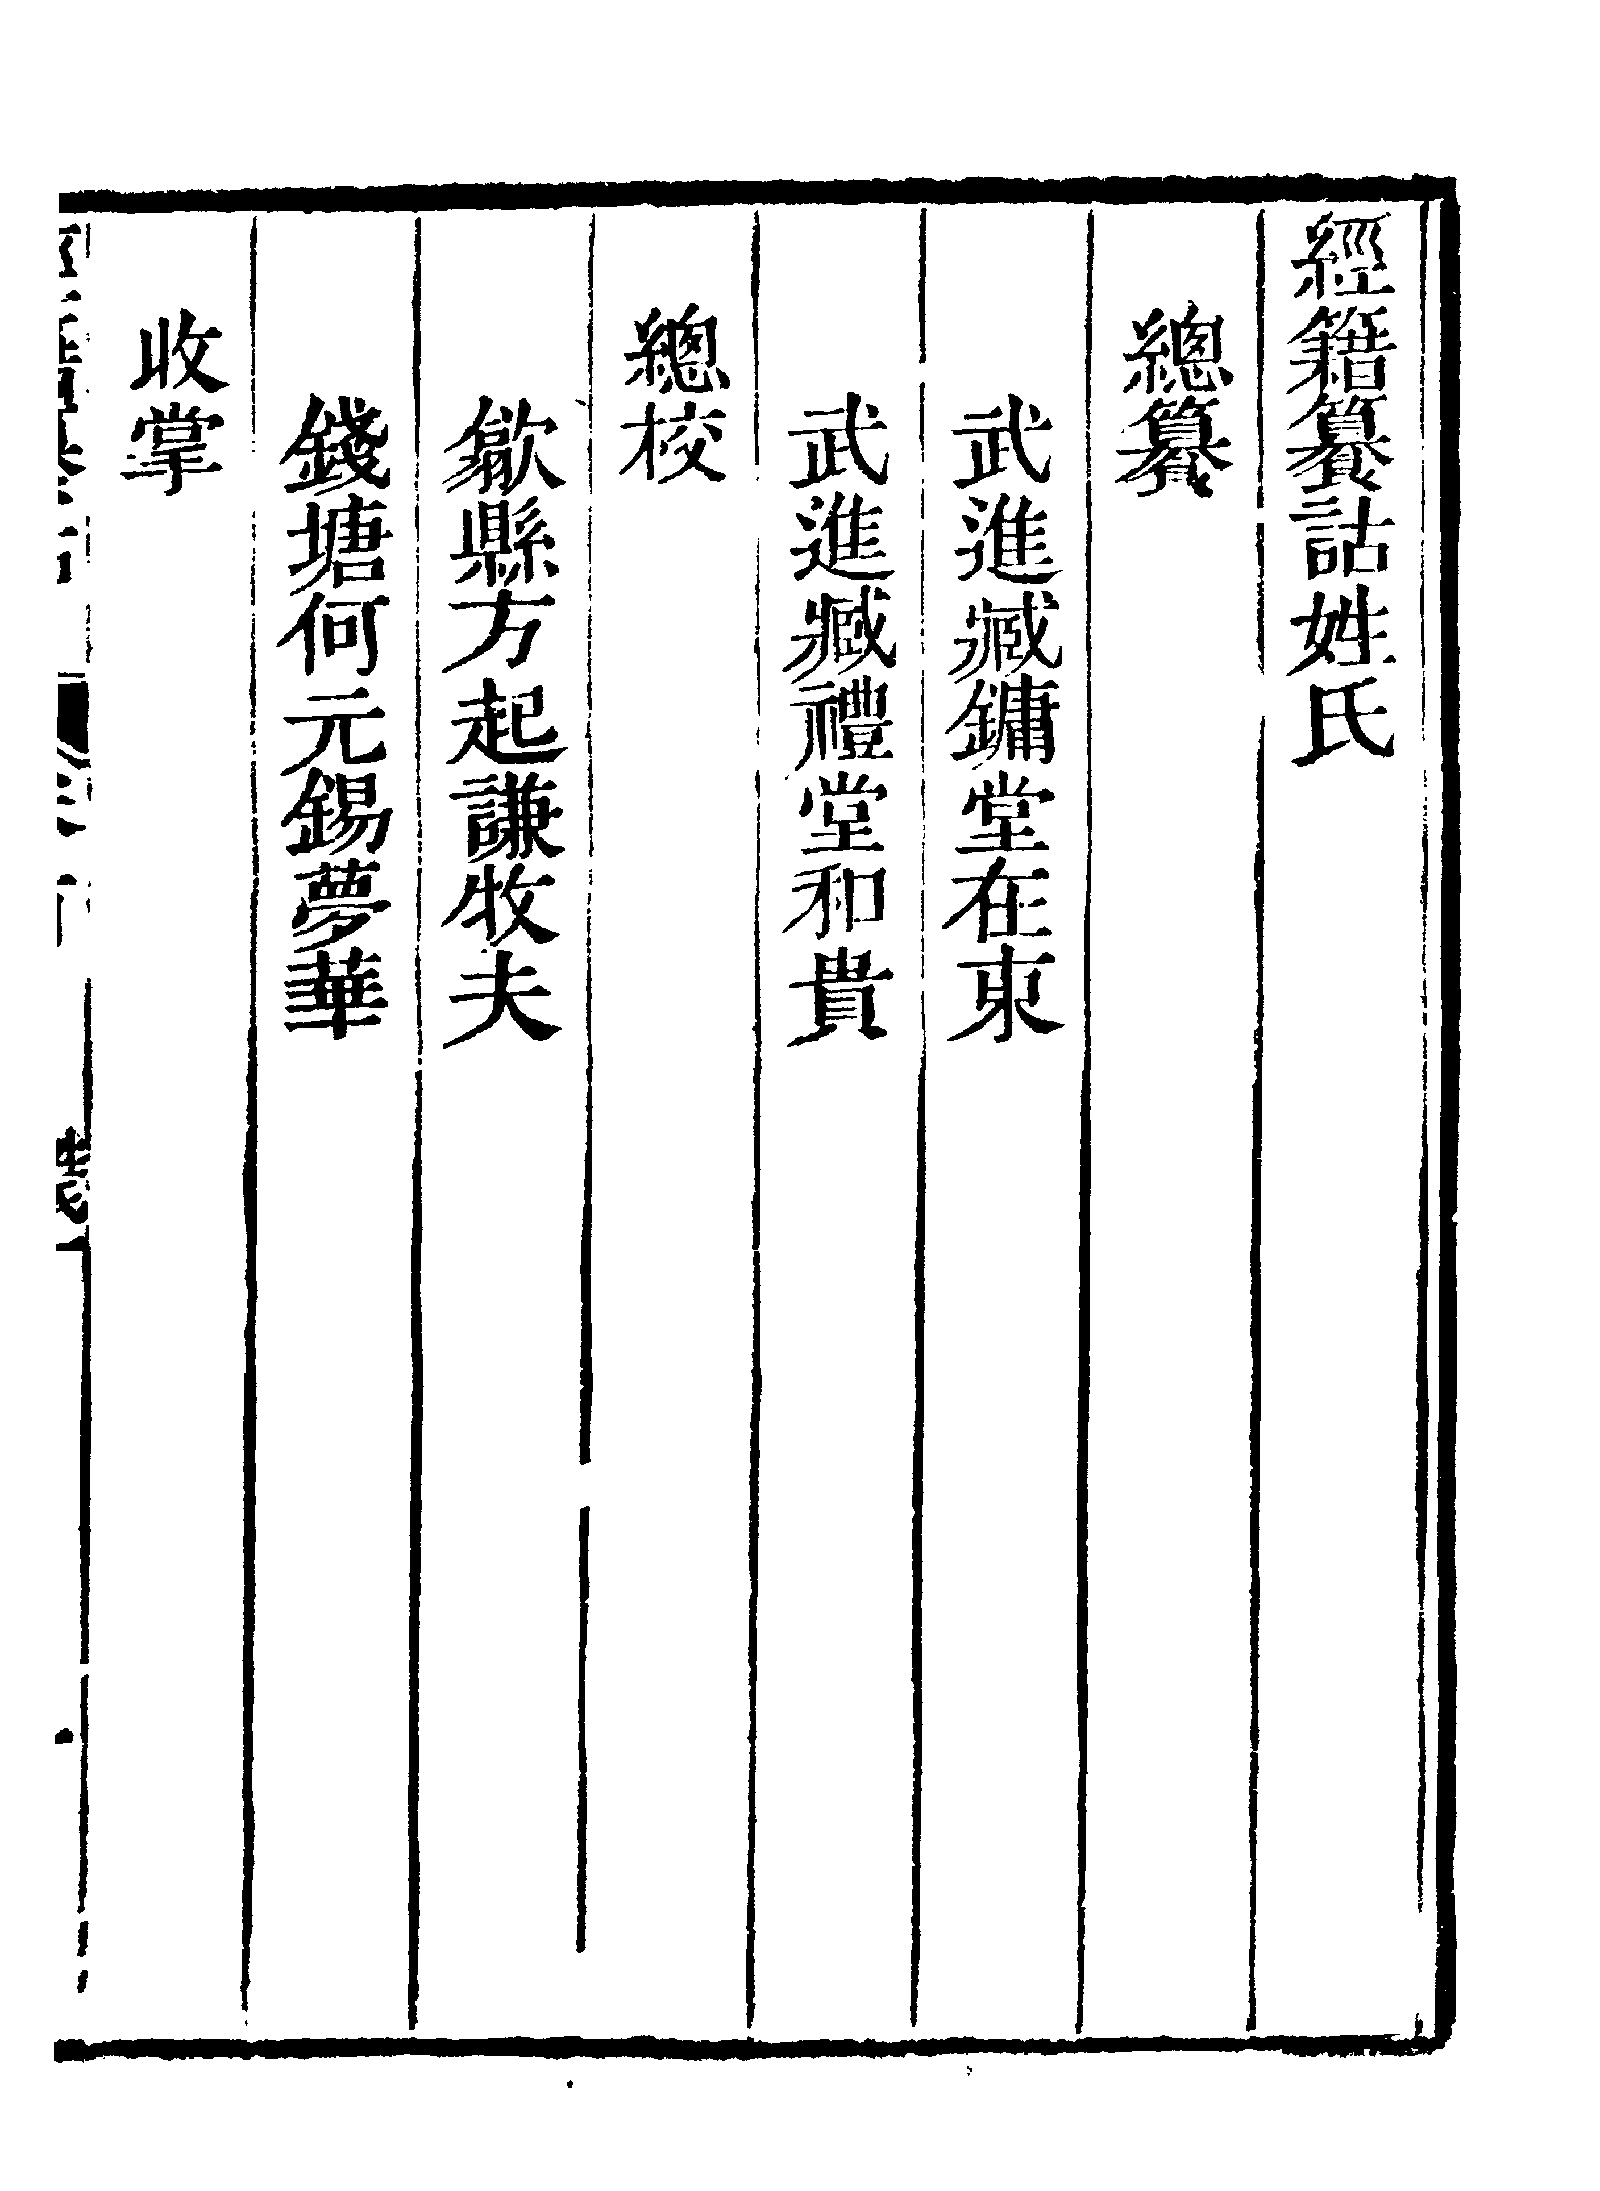 經籍籑詁姓氏
總籑
武進臧鏞堂在東
武進臧禮堂和貴
總校
歙縣方起謙牧夫
錢塘何元錫夢華
收掌